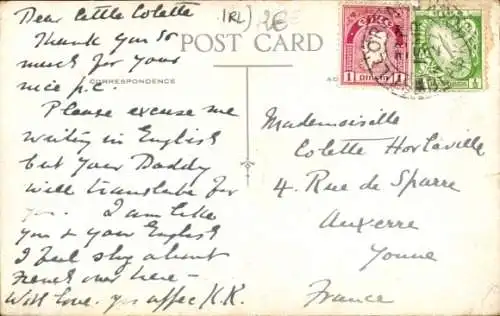 Dear little Colette
Thank you so
much for your
nice p.c.
Please excuse me
writing in English
but your Daddy
will translate for
you. I am like
you & your English
I feel shy about
French over here –
With love. yrs affec K.K.
IRL)
POST CARD
CORRESPONDENCE
Mademoiselle
Colette Hortaville
4. Rue de Sparre
Auxerre
Yonne
France